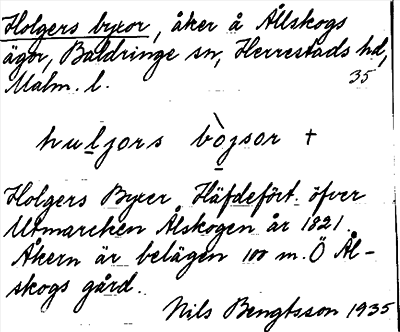 Holgers byxor, åker å Ållskogs
ägor, Baldringe sn, Herrestads hd,
Malm. l. 35
huljors bòjsor +
Holgers Byxer Häfdefört. öfver
Utmarchen Ålskogen år 1821.
Åkern är belägen 100 m. Ö Ål-
skogs gård.
Nils Bengtsson 1935